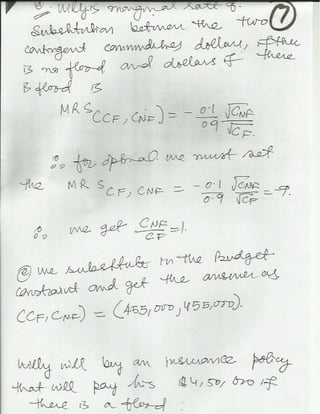 Willy's marginal rate of
Substitution between the two 7
contingent commodities dollars, if there
is no flood and dollars if there
is flood is
MRS(CCF, CNF) = - 0.1 √CNF / 0.9 √CF.
∴ for optimal we must set
the MRS CF, CNF = - 0.1 √CNF / 0.9 √CF = -9.
∴ we get CNF / CF = 1.
@ we substitute in the Budget
constraint and get the answer as
CCF, CNF) = (455,000, 455,000).
Willy will buy an insurance policy
that will pay his $4,50,000 if
there is a flood